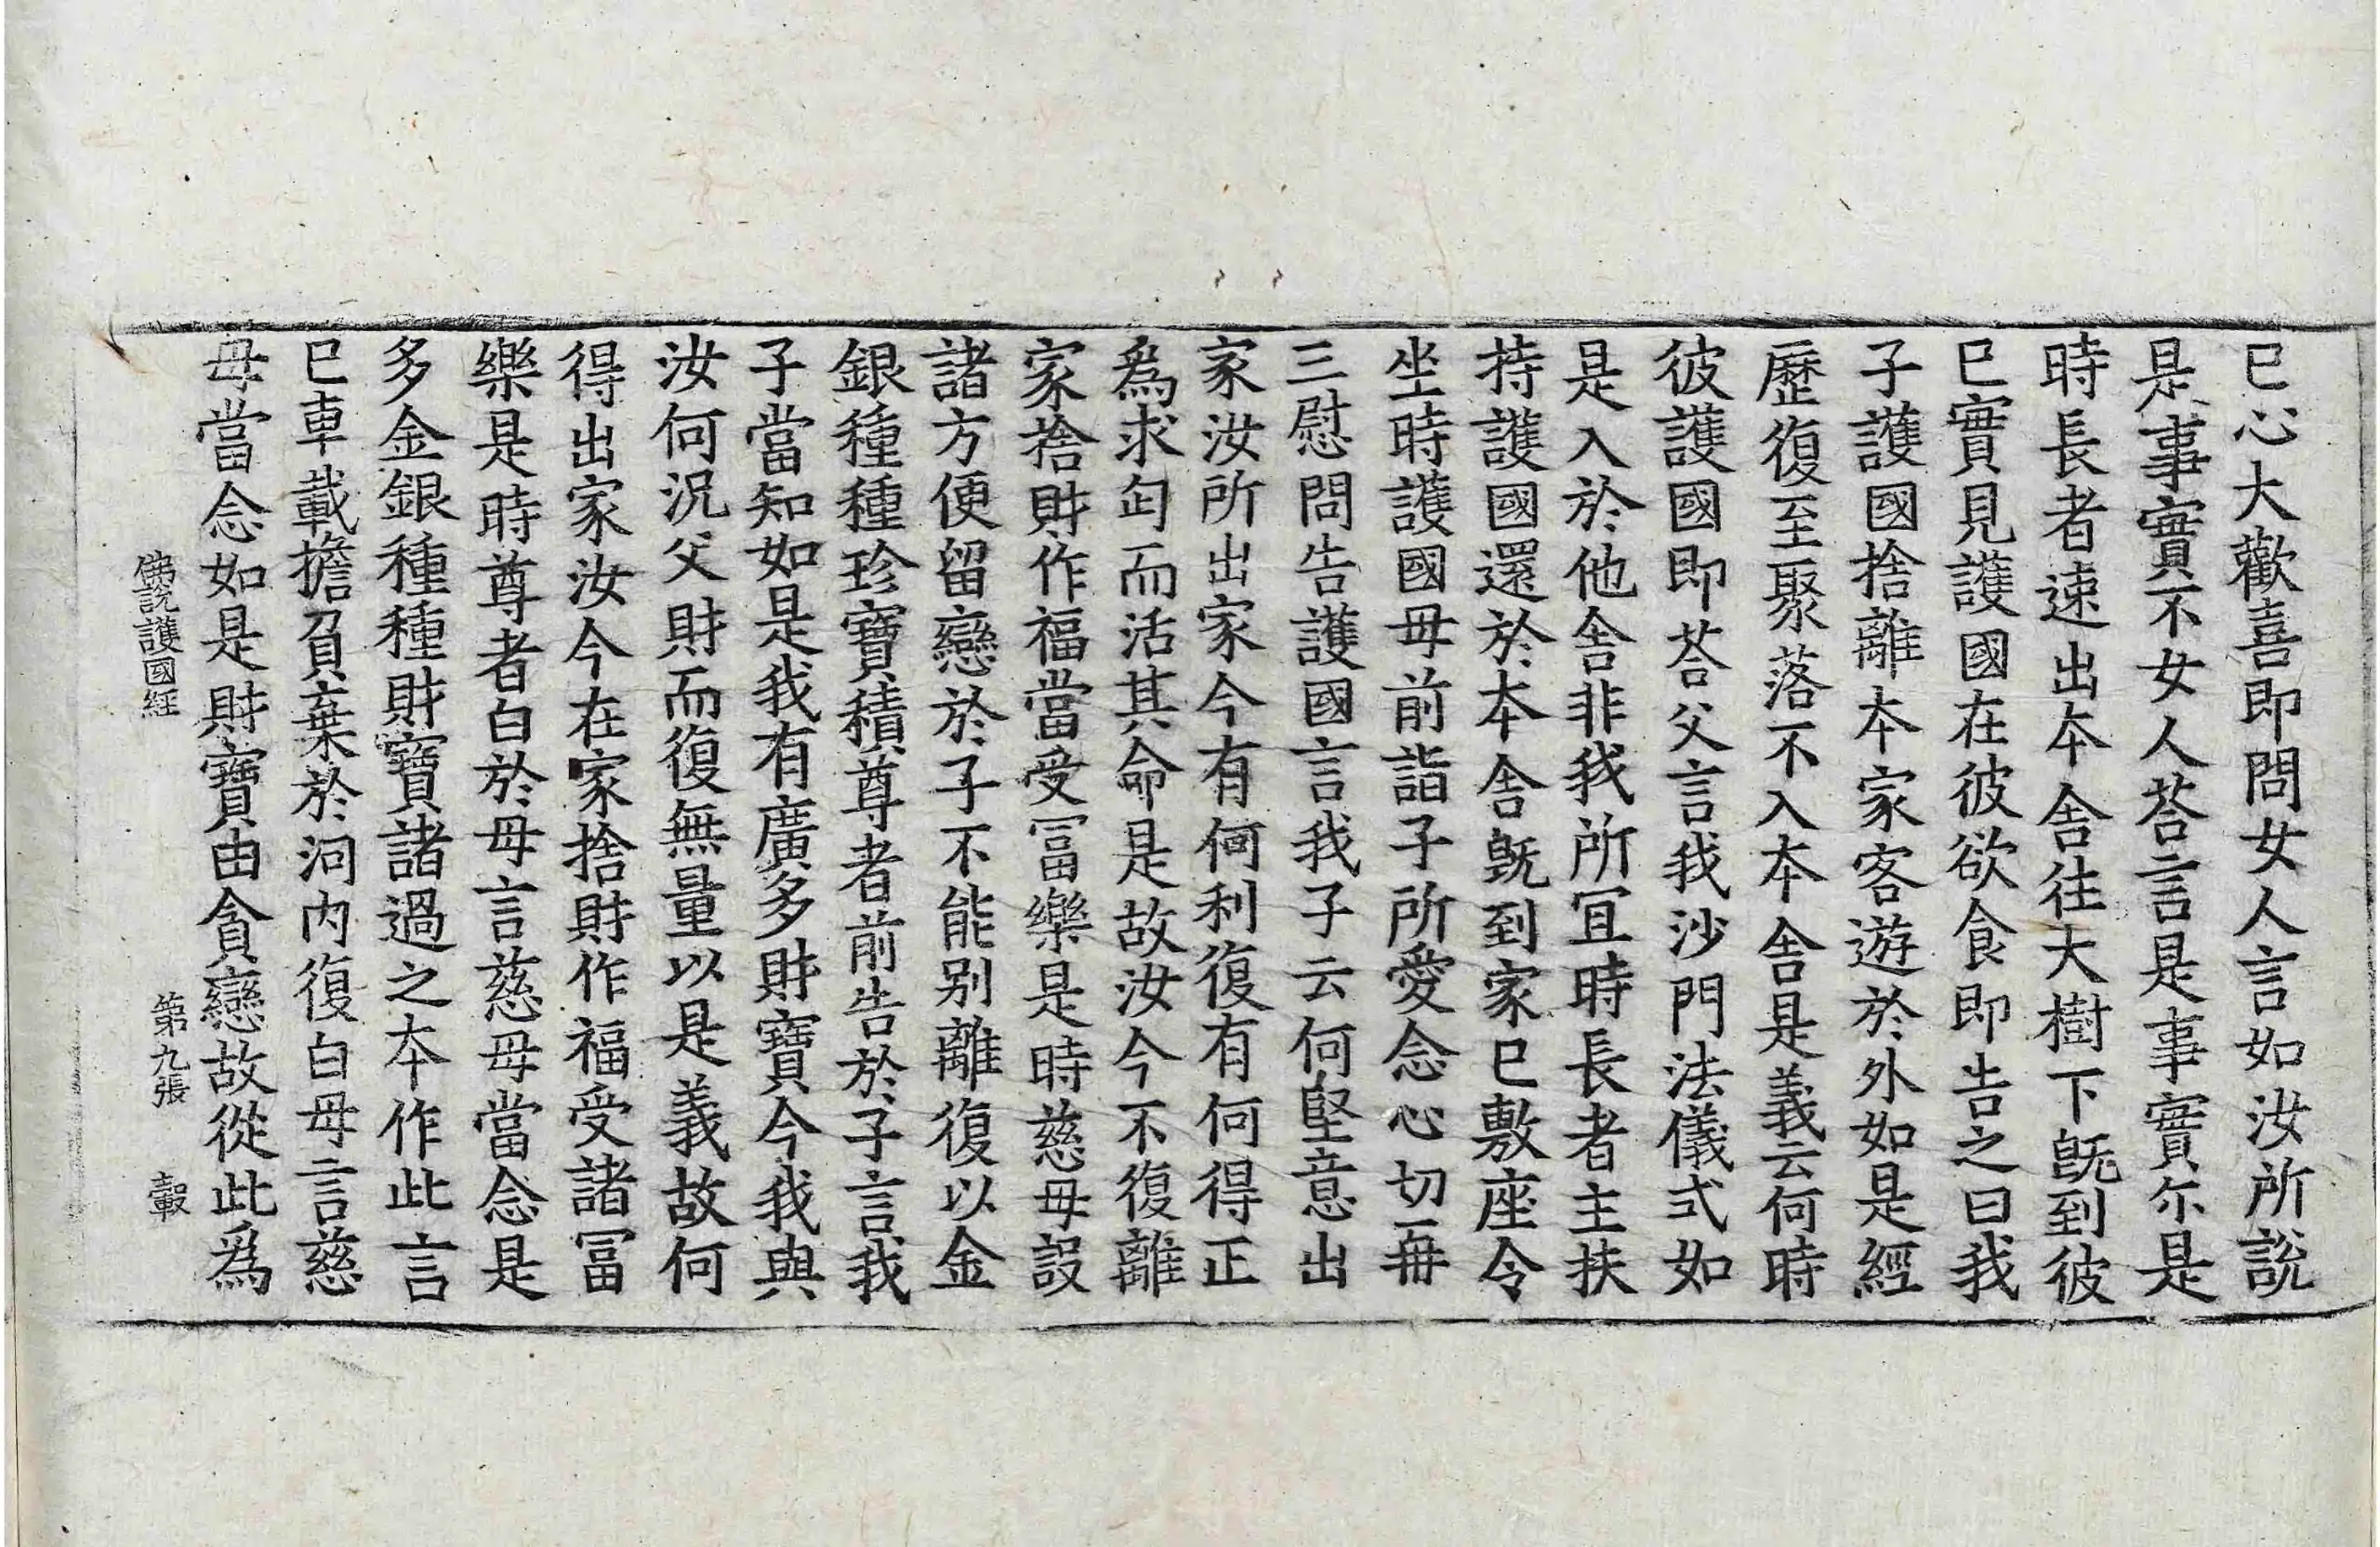 已心大歡喜即問女人言如汝所說
是事實不女人荅言是事實尒是
時長者速出本舍往大樹下旣到彼
已實見護國在彼欲食即告之曰我
子護國捨離本家客遊於外如是經
歷復至聚落不入本舍是義云何時
彼護國即荅父言我沙門法儀式如
是入於他舍非我所冝時長者主扶
持護國還於本舍旣到家已敷座令
坐時護國母前詣子所愛念心切再
三慰問告護國言我子云何堅意出
家汝所出家今有何利復有何得正
爲求匃而活其命是故汝今不復離
家捨財作福當受冨樂是時慈母設
諸方便留戀於子不能别離復以金
銀種種珍寶積尊者前告於子言我
子當知如是我有廣多財寶今我與
汝何況父財而復無量以是義故何
得出家汝今在家捨財作福受諸冨
樂是時尊者白於母言慈母當念是
多金銀種種財寶諸過之本作此言
已車載擔負棄於河内復白母言慈
母當念如是財寶由貪戀故從此爲
佛說護國經 第九張 轂